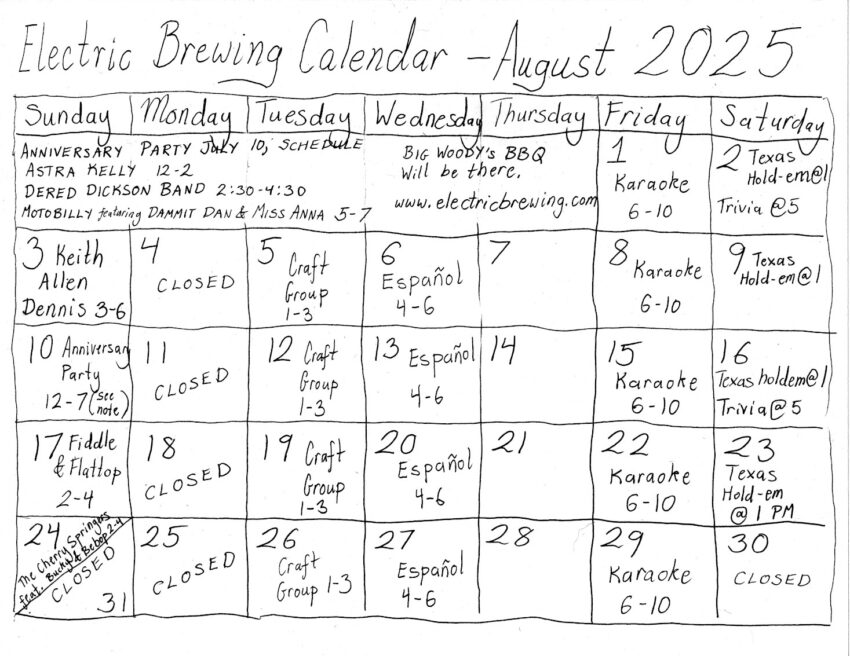 Electric Brewing Calendar - August 2025
Sunday Monday Tuesday Wednesday Thursday Friday Saturday
ANNIVERSARY PARTY JULY 10, SCHEDULE
ASTRA KELLY 12-2
DERED DICKSON BAND 2:30-4:30
MOTOBILLY featuring DAMMIT DAN & MISS ANNA 5-7
BIG WOODY'S BBQ
Will be there.
www.electricbrewing.com
1
Karaoke
6-10
2 Texas
Hold-em@1
Trivia @5
3 Keith
Allen
Dennis 3-6
4
CLOSED
5 Craft
Group
1-3
6
Español
4-6
7
8 Karaoke
6-10
9 Texas
Hold-em@1
10 Anniversary
Party
12-7 (see
note)
11
CLOSED
12 Craft
Group
1-3
13 Español
4-6
14
15
Karaoke
6-10
16
Texas holdem@1
Trivia@5
17 Fiddle
& Flattop
2-4
18
CLOSED
19 Craft
Group
1-3
20
Español
4-6
21
22
Karaoke
6-10
23
Texas
Hold-em
@ 1 PM
24
The Cherry Springers
feat. Bucky & Bebop 2-4
CLOSED
31
25
CLOSED
26
Craft
Group 1-3
27
Español
4-6
28
29
Karaoke
6-10
30
CLOSED